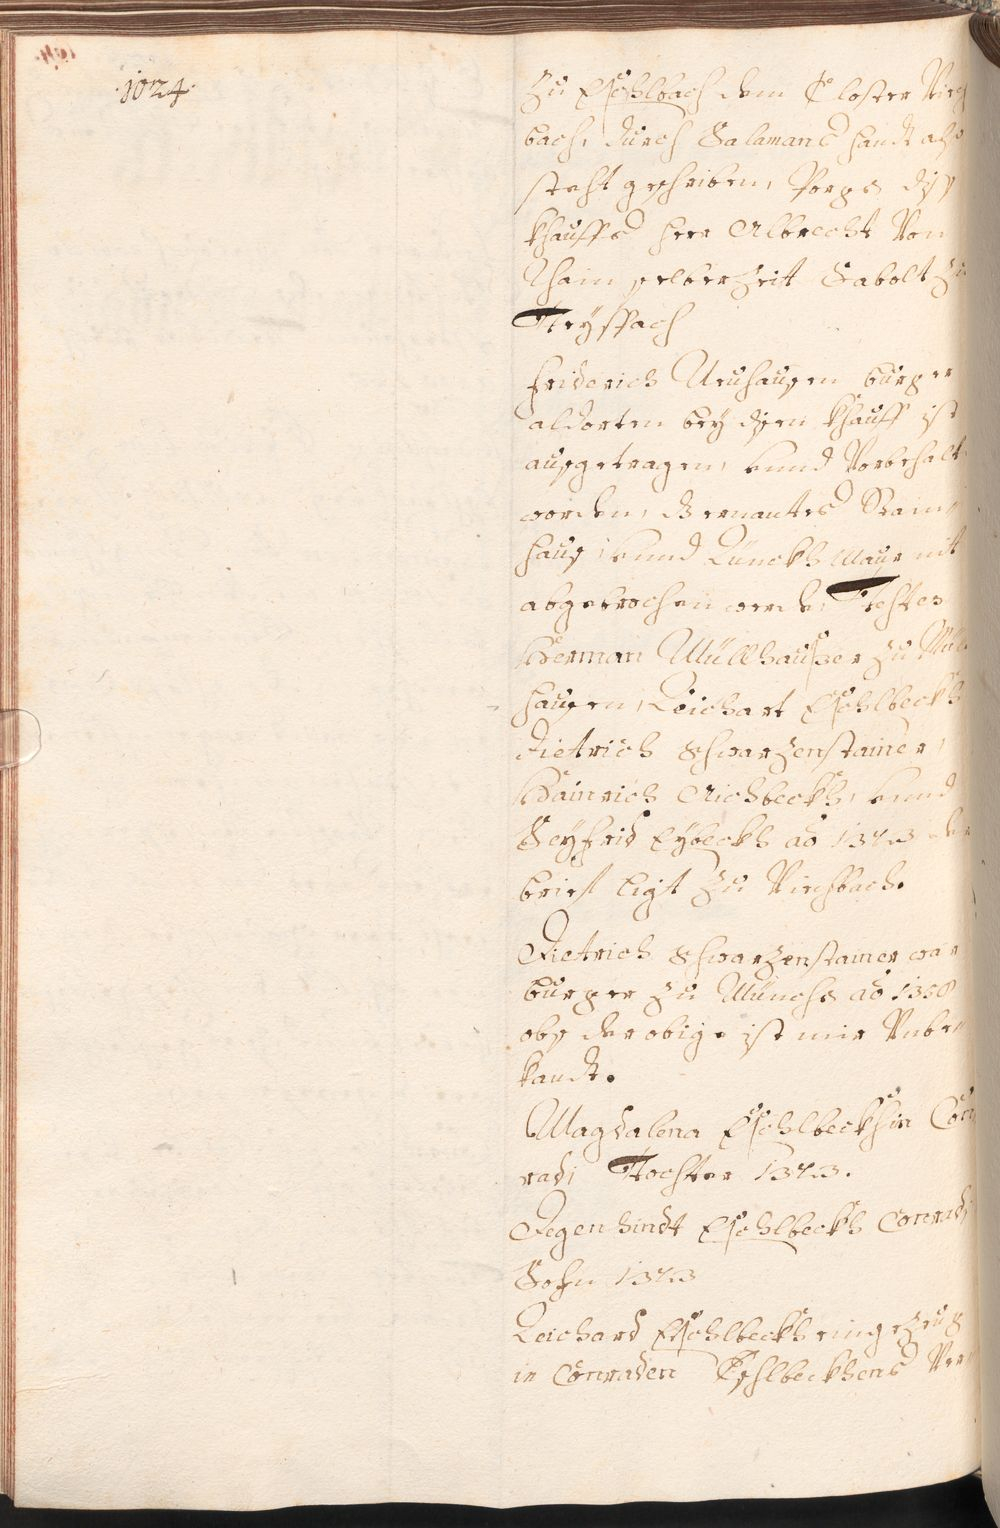 ·1024·
Zu Eschlbach dem Closter Viech
bach, durch Salamans handt also
steht geschriben, Porgs diß
Khauffs herr Albrecht Von
Thain selber Zeit Sabolt Zu
Treyspach
Friderich Neuhausen burger
aldorten bey disem Khauff ist
ausgetragen, vnnd Vorbehalt
worden, Stain
haus, vnnd Mauer nit
abgebrochen werde, Testes
Herman Müllhauser Zu Müll
hausen, Reichart Eschlbeckh
Dietrich Schwarzenstainer,
Hainrich Aichbeckh, vnnd
Seyfrid Eybeckh ao 1373 der
brief ligt Zu Viechbach.
Dietrich Schwarzenstainer war
burger Zu Münch ao 1358
obs der obige ist mir Vnbe
kandt.
Magdalena Eschlbeckhin Con
radi Tochter 1373.
Degenhindt Eschlbeckh Conradi
Sohn 1373
Reichard Eschlbeckh ein gezeug
in Conraden Eschlbeckhens Ver